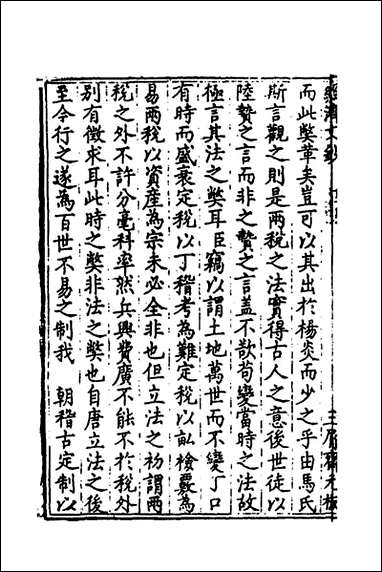 而此弊革矣豈可以其出於楊炎而少之乎由馬氏
斯言觀之則是兩稅之法實得古人之意後世徒以
陸贄之言而非之贄之言蓋不欲苟變當時之法故
極言其法之弊耳臣竊以謂土地萬世而不變丁口
有時而盛衰定稅以丁稽考為難定稅以畝檢覈為
易兩稅以資產為宗未必全非也但立法之初謂兩
稅之外不許分毫科率然兵興費廣不能不於稅外
別有徵求耳此時之弊非法之弊也自唐立法之後
至今行之遂為百世不易之制我　朝稽古定制以